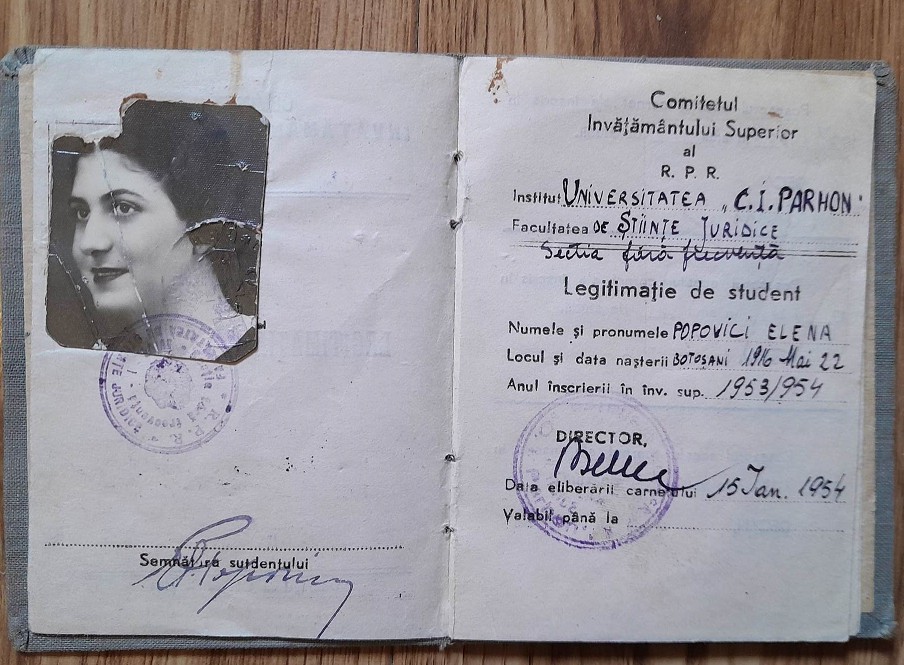 Semnătura sutdentului
E. Popovici
Comitetul
Invățământului Superior
al
R. P. R.
Institut UNIVERSITATEA „C. I. PARHON"
Facultatea DE ȘTIINȚE JURIDICE
Secția fără frecvență
Legitimație de student
Numele și pronumele POPOVICI ELENA
Locul și data nașterii BOTOȘANI 1916 Mai 22
Anul înscrierii în înv. sup. 1953/954
DIRECTOR,
Data eliberării carnetului 15 Ian. 1954
Valabil până la